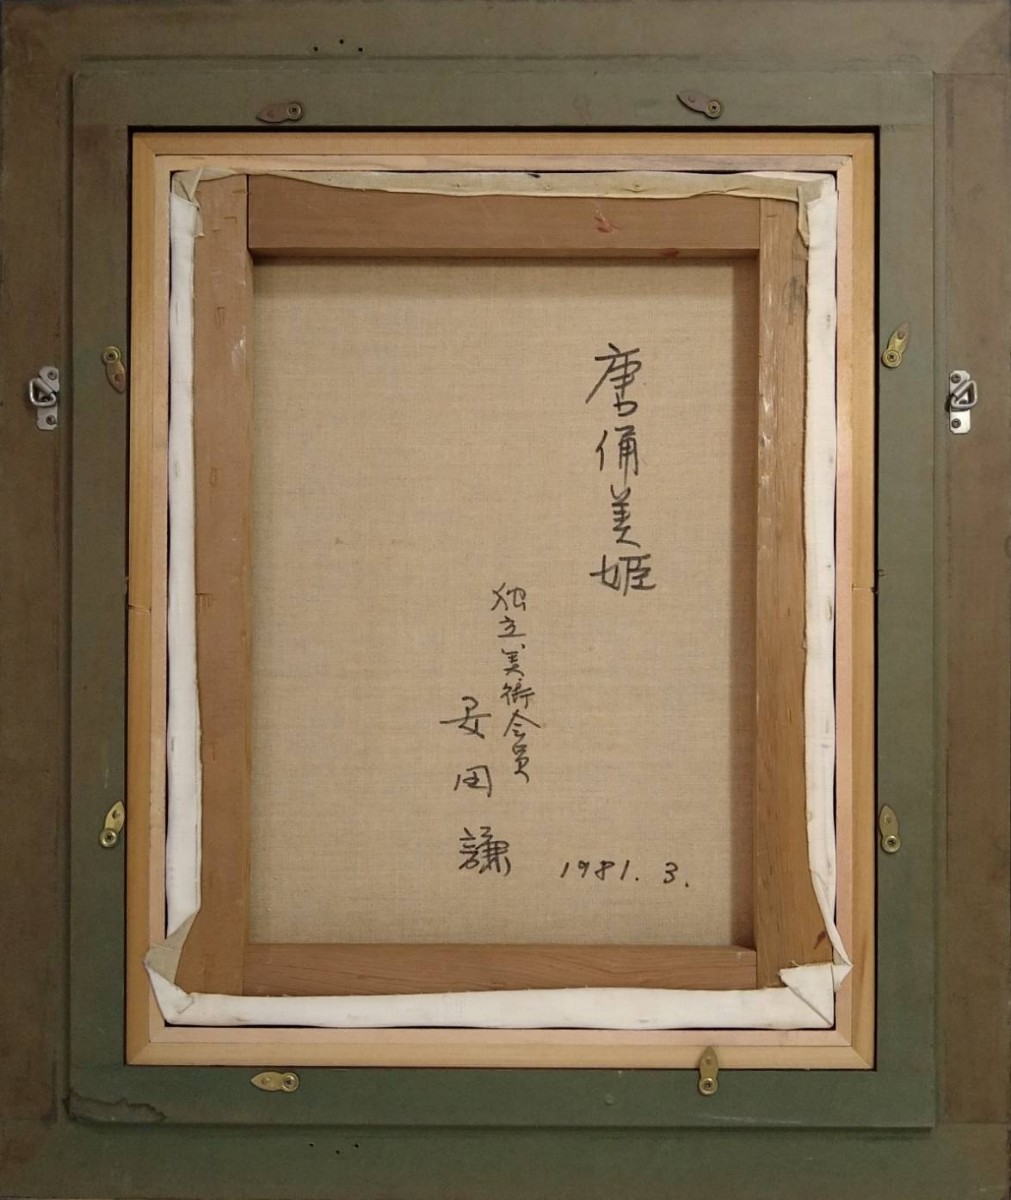 唐俑美姫
独立美術会員
安田謙
1981.3.